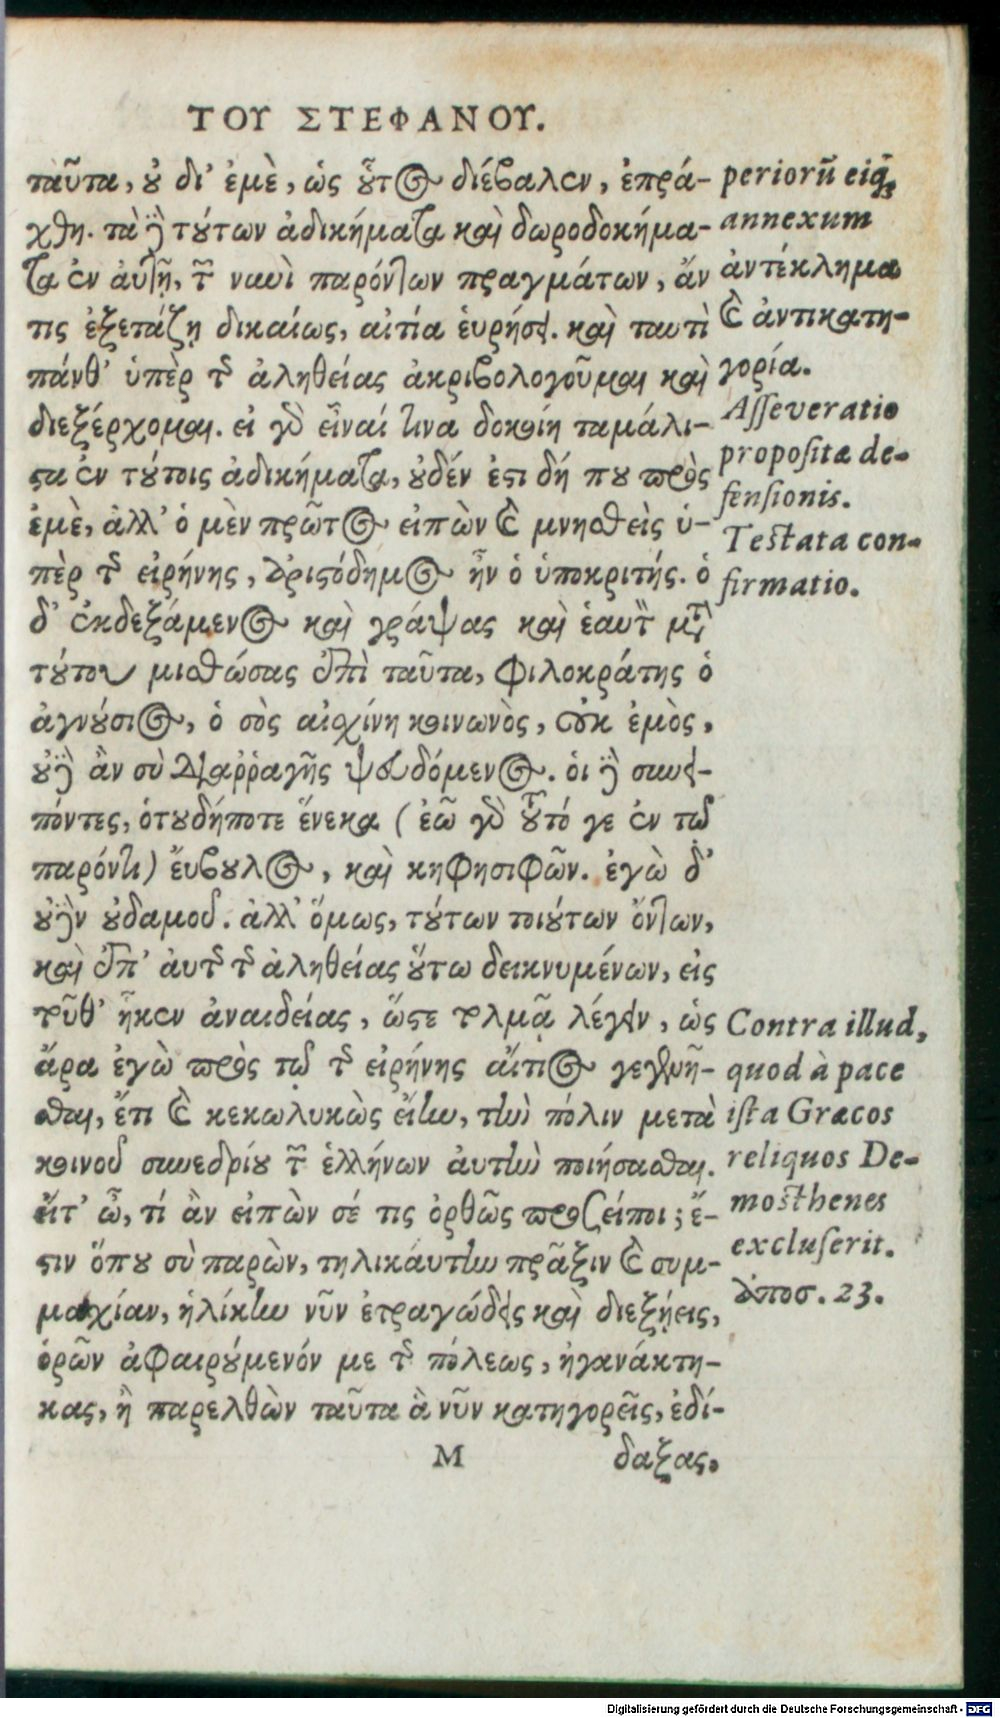 ΤΟΥ ΣΤΕΦΑΝΟΥ.
ταῦτα, οὐ δι' ἐμὲ, ὡς οὗτος διέβαλεν, ἐπρά-
χθη. τὰ δὲ τούτων ἀδικήματα καὶ δωροδοκήμα-
τα ἐν αὐτῇ, τῶν νυνὶ παρόντων πραγμάτων, ἄν
τις ἐξετάζῃ δικαίως, αἰτία εὑρήσει. καὶ ταυτὶ
πάνθ' ὑπὲρ τῆς ἀληθείας ἀκριβολογοῦμαι καὶ
διεξέρχομαι. εἰ γὰρ εἶναί τινα δοκοίη ταμάλι-
στα ἐν τούτοις ἀδικήματα, οὐδέν ἐστι δή που πρὸς
ἐμὲ, ἀλλ' ὁ μὲν πρῶτος εἰπὼν καὶ μνησθεὶς ὑ-
πὲρ τῆς εἰρήνης, ἀριστόδημος ἦν ὁ ὑποκριτής. ὁ
δ' ἐκδεξάμενος καὶ γράψας καὶ ἑαυτὸν μετὰ
τούτου μισθώσας ἐπὶ ταῦτα, φιλοκράτης ὁ
ἁγνούσιος, ὁ σὸς αἰσχίνη κοινωνὸς, οὐκ ἐμὸς,
οὐδὲ ἂν σὺ διαρῥαγῇς ψευδόμενος. οἱ δὲ συνει-
πόντες, ὁτουδήποτε ἕνεκα (ἐῶ γὰρ τοῦτό γε ἐν τῷ
παρόντι) ἔυβουλος, καὶ κηφησιφῶν. ἐγὼ δ'
οὐδὲν οὐδαμοῦ. ἀλλ' ὅμως, τούτων τοιούτων ὄντων,
καὶ ἐπ' αὐτῆς τῆς ἀληθείας οὕτω δεικνυμένων, εἰς
τοῦθ' ἧκεν ἀναιδείας, ὥστε τολμᾷ λέγειν, ὡς
ἄρα ἐγὼ πρὸς τῷ τῆς εἰρήνης αἴτιος γεγενῆ-
σθαι, ἔτι καὶ κεκωλυκὼς εἴην, τὴν πόλιν μετὰ
κοινοῦ συνεδρίου τῶν ἑλλήνων αὐτὴν ποιήσασθαι.
εἶτ' ὦ, τί ἂν εἰπὼν σέ τις ὀρθῶς προσείποι; ἔ-
στιν ὅπου σὺ παρὼν, τηλικαύτην πρᾶξιν καὶ συμ-
μαχίαν, ἡλίκην νῦν ἐτραγώδεις καὶ διεξῄεις,
ὁρῶν ἀφαιρούμενόν με τῆς πόλεως, ἠγανάκτη-
κας, ἢ παρελθὼν ταῦτα ἃ νῦν κατηγορεῖς, ἐδί-
M δαξας,
periorū eiq;
annexum
ἀντέκλημα
καὶ ἀντικατη-
γορία.
Asseveratio
propositæ de-
fensionis.
Testata con-
firmatio.
Contra illud,
quod à pace
ista Græcos
reliquos De-
mosthenes
excluserit.
ἀποσ. 23.
Digitalisierung gefördert durch die Deutsche Forschungsgemeinschaft - DFG